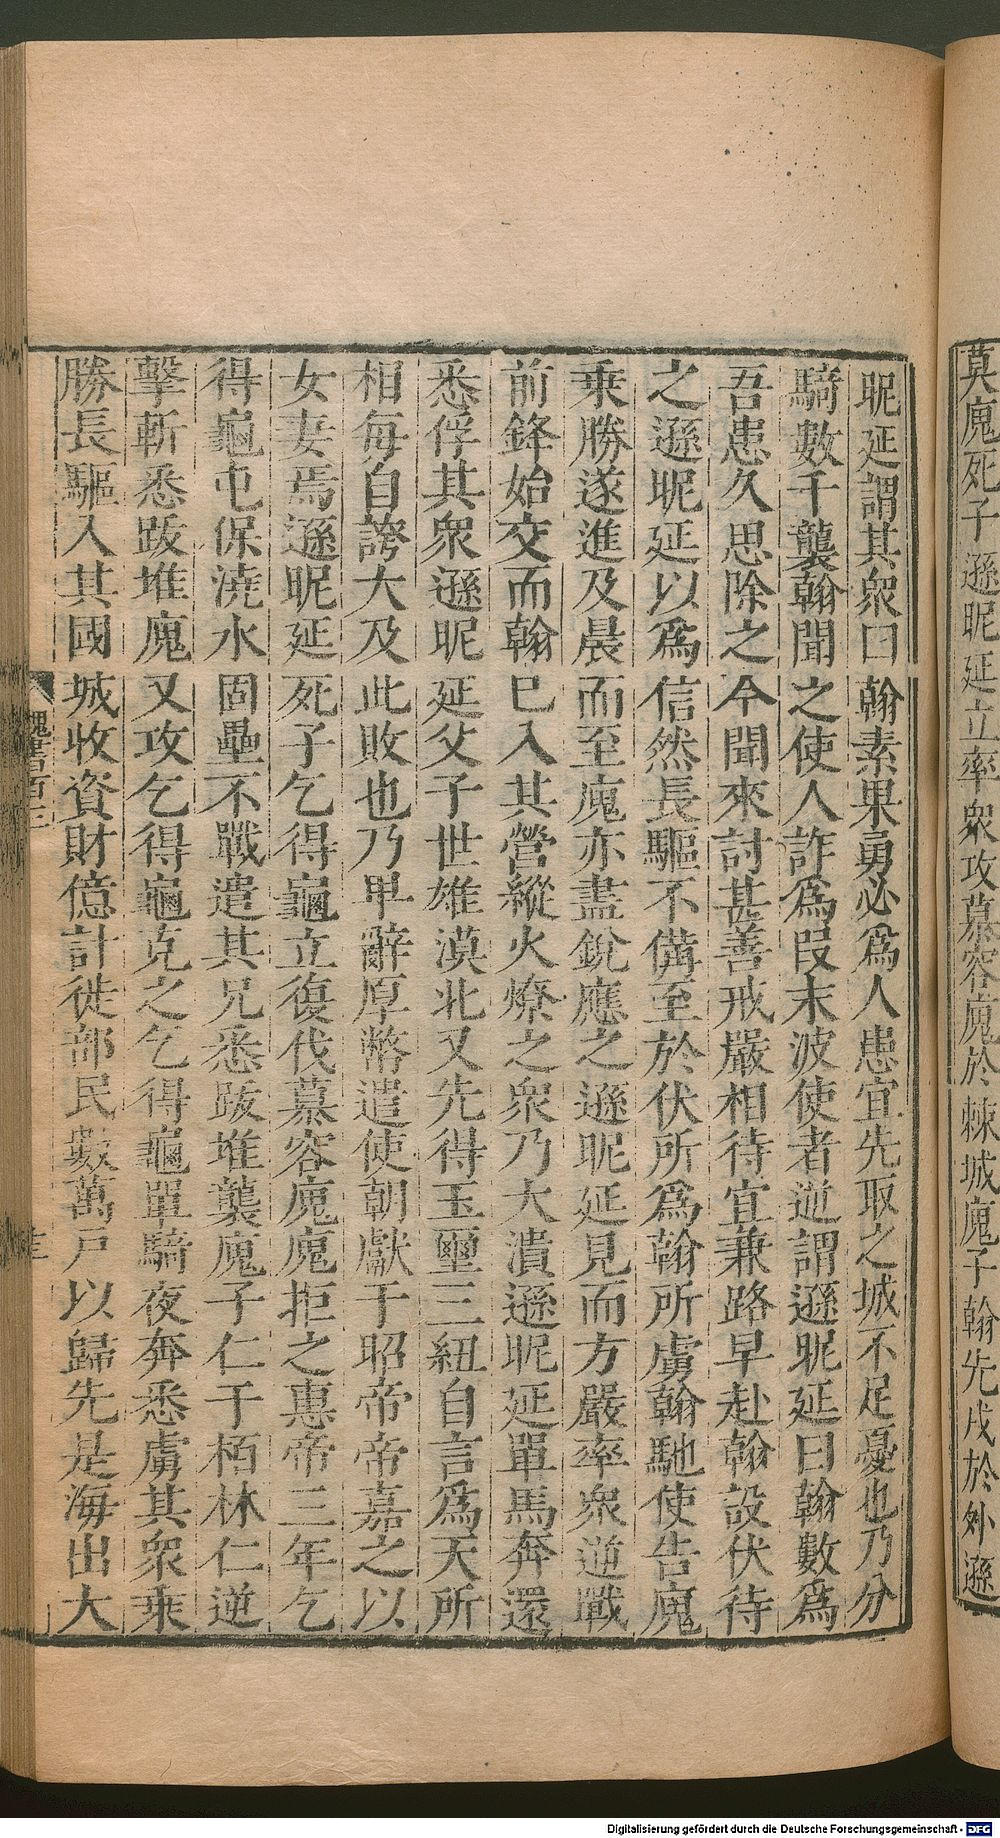 莫廆死子遜昵延立率衆攻慕容廆於棘城廆子翰先戍於外遜
昵延謂其衆曰翰素果勇必爲人患宜先取之城不足憂也乃分
騎數千襲翰翰聞之使人詐爲段末波使者逆謂遜昵延曰翰數爲
吾患久思除之今聞來討甚善戒嚴相待宜兼路早赴翰設伏待
之遜昵延以爲信然長驅不備至於伏所爲翰所虜翰馳使告廆
乘勝遂進及晨而至廆亦盡銳應之遜昵延見而方嚴率衆逆戰
前鋒始交而翰已入其營縱火燎之衆乃大潰遜昵延單馬奔還
悉俘其衆遜昵延父子世雄漠北又先得玉璽三紐自言爲天所
相每自誇大及此敗也乃卑辭厚幣遣使朝獻于昭帝帝嘉之以
女妻焉遜昵延死子乞得龜立復伐慕容廆廆拒之惠帝三年乞
得龜屯保澆水固壘不戰遣其兄悉跋堆襲廆子仁于栢林仁逆
擊斬悉跋堆廆又攻乞得龜克之乞得龜單騎夜奔悉虜其衆乘
勝長驅入其國城收資財億計徙部民數萬戶以歸先是海出大
魏書百三
Digitalisierung gefördert durch die Deutsche Forschungsgemeinschaft - DFG